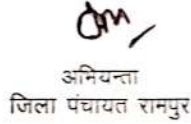 अभियन्ता
जिला पंचायत रामपुर